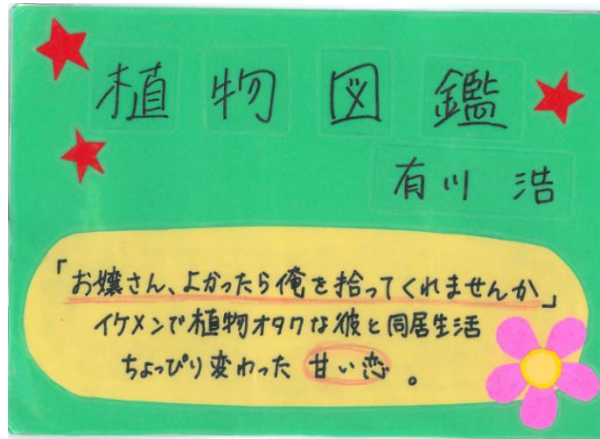 植物図鑑
有川 浩
「お嬢さん、よかったら俺を拾ってくれませんか」
イケメンで植物オタクな彼と同居生活
ちょっぴり変わった 甘い恋 。